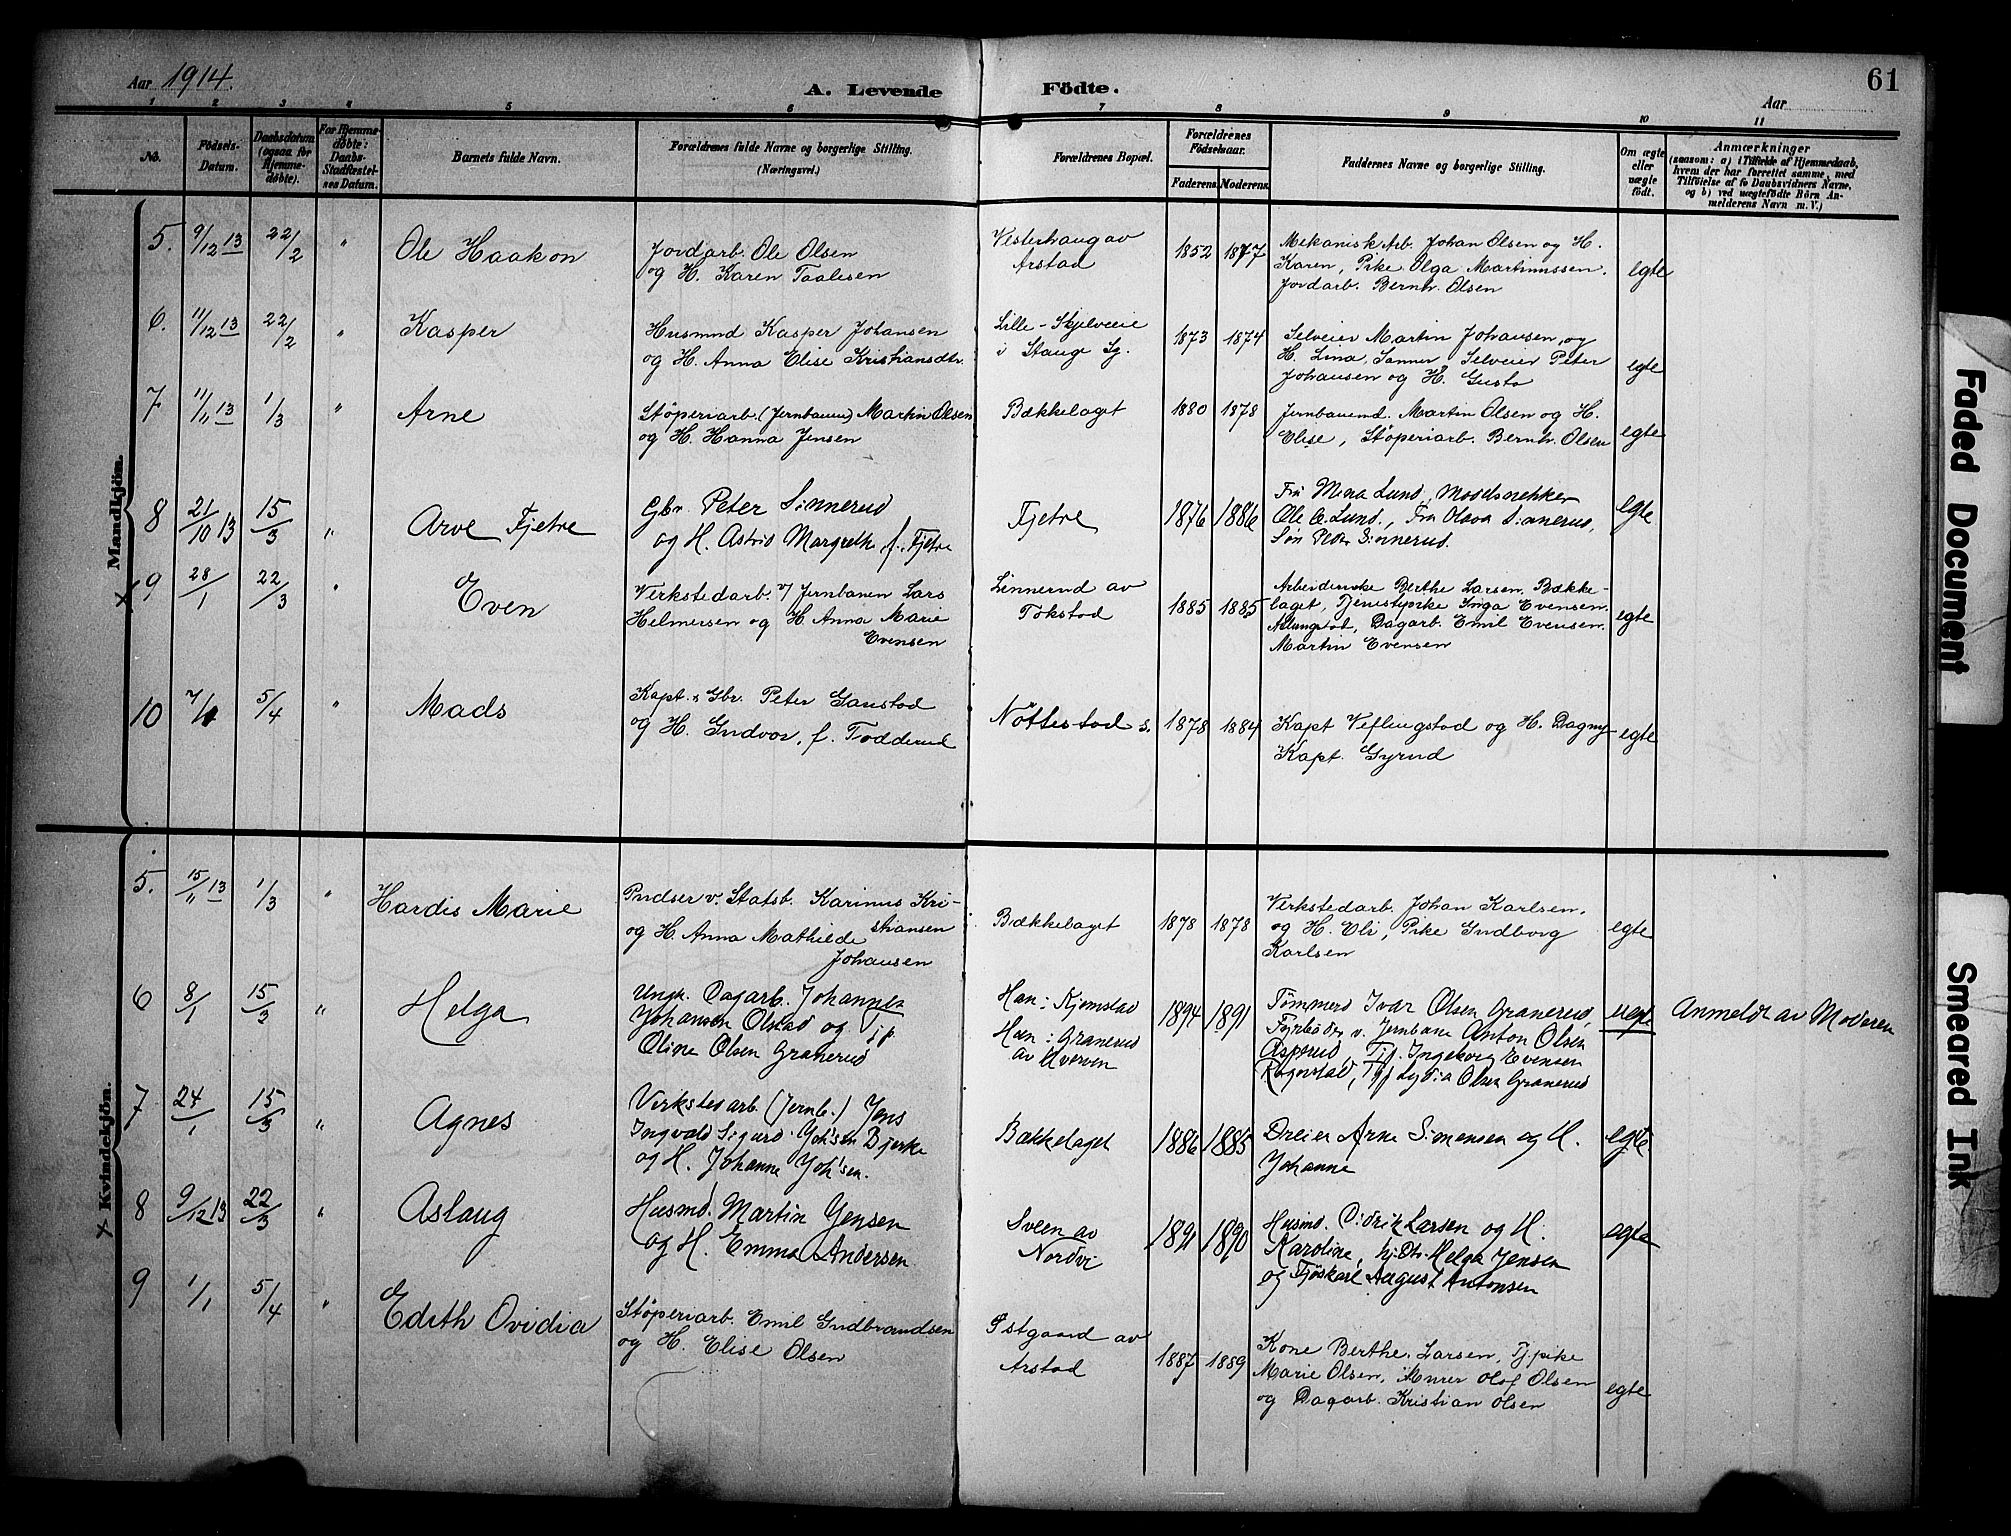 Aar 1914.
A. Levende Födte.
61
Aar
1 2 3 4 5 6 7 8 9 10 11
No.
Födsels-Datum.
Daabsdatum (ogsaa for Hjemme-döbte).
For Hjemme-döbte: Daabs-Stadfæstel-ses Datum.
Barnets fulde Navn.
Forældrenes fulde Navne og borgerlige Stilling. (Næringsvei.)
Forældrenes Bopæl.
Forældrenes Födselsaar.
Faderens. Moderens.
Faddernes Navne og borgerlige Stilling.
Om ægte eller uægte födt.
Anmærkninger
(saasom: a) i Tilfælde af Hjemmedaab, hvem der har forrettet samme, med Tilföielse af to Daabsvidners Navne, og b) ved uægtefödte Börn An-melderens Navn m. V.)
Mandkjön.
5. 9/12 13 22/2 " Ole Haakon
Jordarb. Ole Olsen
og H. Karen Taalesen
Vesterhaug av
Arstad
1852 1877
Mekanisk Arb. Johan Olsen og H.
Karen, Pike Olga Martinussen.
Jordarb. Bernh. Olsen
egte
6. 11/12 13 22/2 " Kasper
Husmnd Kasper Johansen
og H. Anna Elise Kristiansdtr.
Lille-Skjelveie
i Stange Sg.
1873 1874
Selveier Martin Johansen, og
H. Lina, Sanner Selveier Peter
Johansen og H. Gusta
egte
7 11/11 13 1/3 " Arne
Støperiarb. (Jernbanen) Martin Olsen
og H. Hanna Jensen
Bækkelaget
1880 1878
Jernbanemd. Martin Olsen og H.
Elise, Støperiarb. Bernh. Olsen
egte
8 21/10 13 15/3 " Arve Fjetre
Gbr. Peter Sinnerud
og H. Astrid Margreth, f. Fjetre
Fjetre
1876 1886
Fru Mina Lund, Modelsnekker
Ole C. Lund., Fru Olava Sinnerud,
Søn Peder Sinnerud.
egte
x 9 28/1 22/3 " Even
Verkstedarb. v/ Jernbanen Lars
Helmersen og H. Anna Marie
Evensen
Linnerud av
Tokstad
1885 1885
Arbeiderske Berthe Larsen, Bække-
laget, Tjenestpike Inga Evensen
Atlungstad, Dagarb. Emil Evensen.
Martin Evensen
egte
10 7/1 5/4 " Mads
Kapt. & Gbr. Peter Gaustad
og H. Gudvor, f. Todderud
Nøttestad s.
1878 1884
Kapt Veflingstad og H. Dagny
Kapt. Gyrud
egte
x Kvindekjön.
5. 15/11 13 1/3 " Hardis Marie
Pudser v. Statsb. Karinus Kri-
stiansen
og H. Anna Mathilde
Johansen
Bækkelaget
1878 1878
Verkstedarb. Johan Karlsen.
og H. Oli, Pike Gudborg
Karlsen
egte
6 8/1 15/3 " Helga
Ungk. Dagarb. Johannes
Johansen Olstad og Pi.
Oline Olsen Granerud
Han: Kjemstad
Hun: Granerud
av Hverven
1894 1891
Tømmerd Ivar Olsen Granerud
Fyrbøder v. Jernbane Anton Olsen
Asperud Tj. Ingeborg Evensen
Ragnstad, Tjp Lydia Olsen Granerud
uegte
Anmeldt av Moderen
7 24/1 15/3 " Agnes
Verkstedarb. (Jernb.) Jens
Ingvald Sigurd Joh'sen Bjerke
og H. Johanne Joh'sen.
Bækkelaget
1886 1885
Dreier Arne Simensen og H.
Johanne
egte
8 9/12 13 22/3 " Aslaug
Husmd. Martin Jensen
og H. Emma Andersen
Sveen av
Nordvi
1891 1890
Husmd. Didrik Larsen og H.
Karoline, hj. Dtr. Helga Jensen
og Fjøskarl August Antonsen
egte
9 1/1 5/4 " Edith Ovidia
Støperiarb. Emil Gudbrandsen
og H. Elise Olsen
Østgaard av
Arstad
1887 1889
Kone Berthe Larsen, Tj.pike
Marie Olsen, Murer Olof Olsen
og Dagarb. Kristian Olsen
egte
Faded Document
Smeared Ink